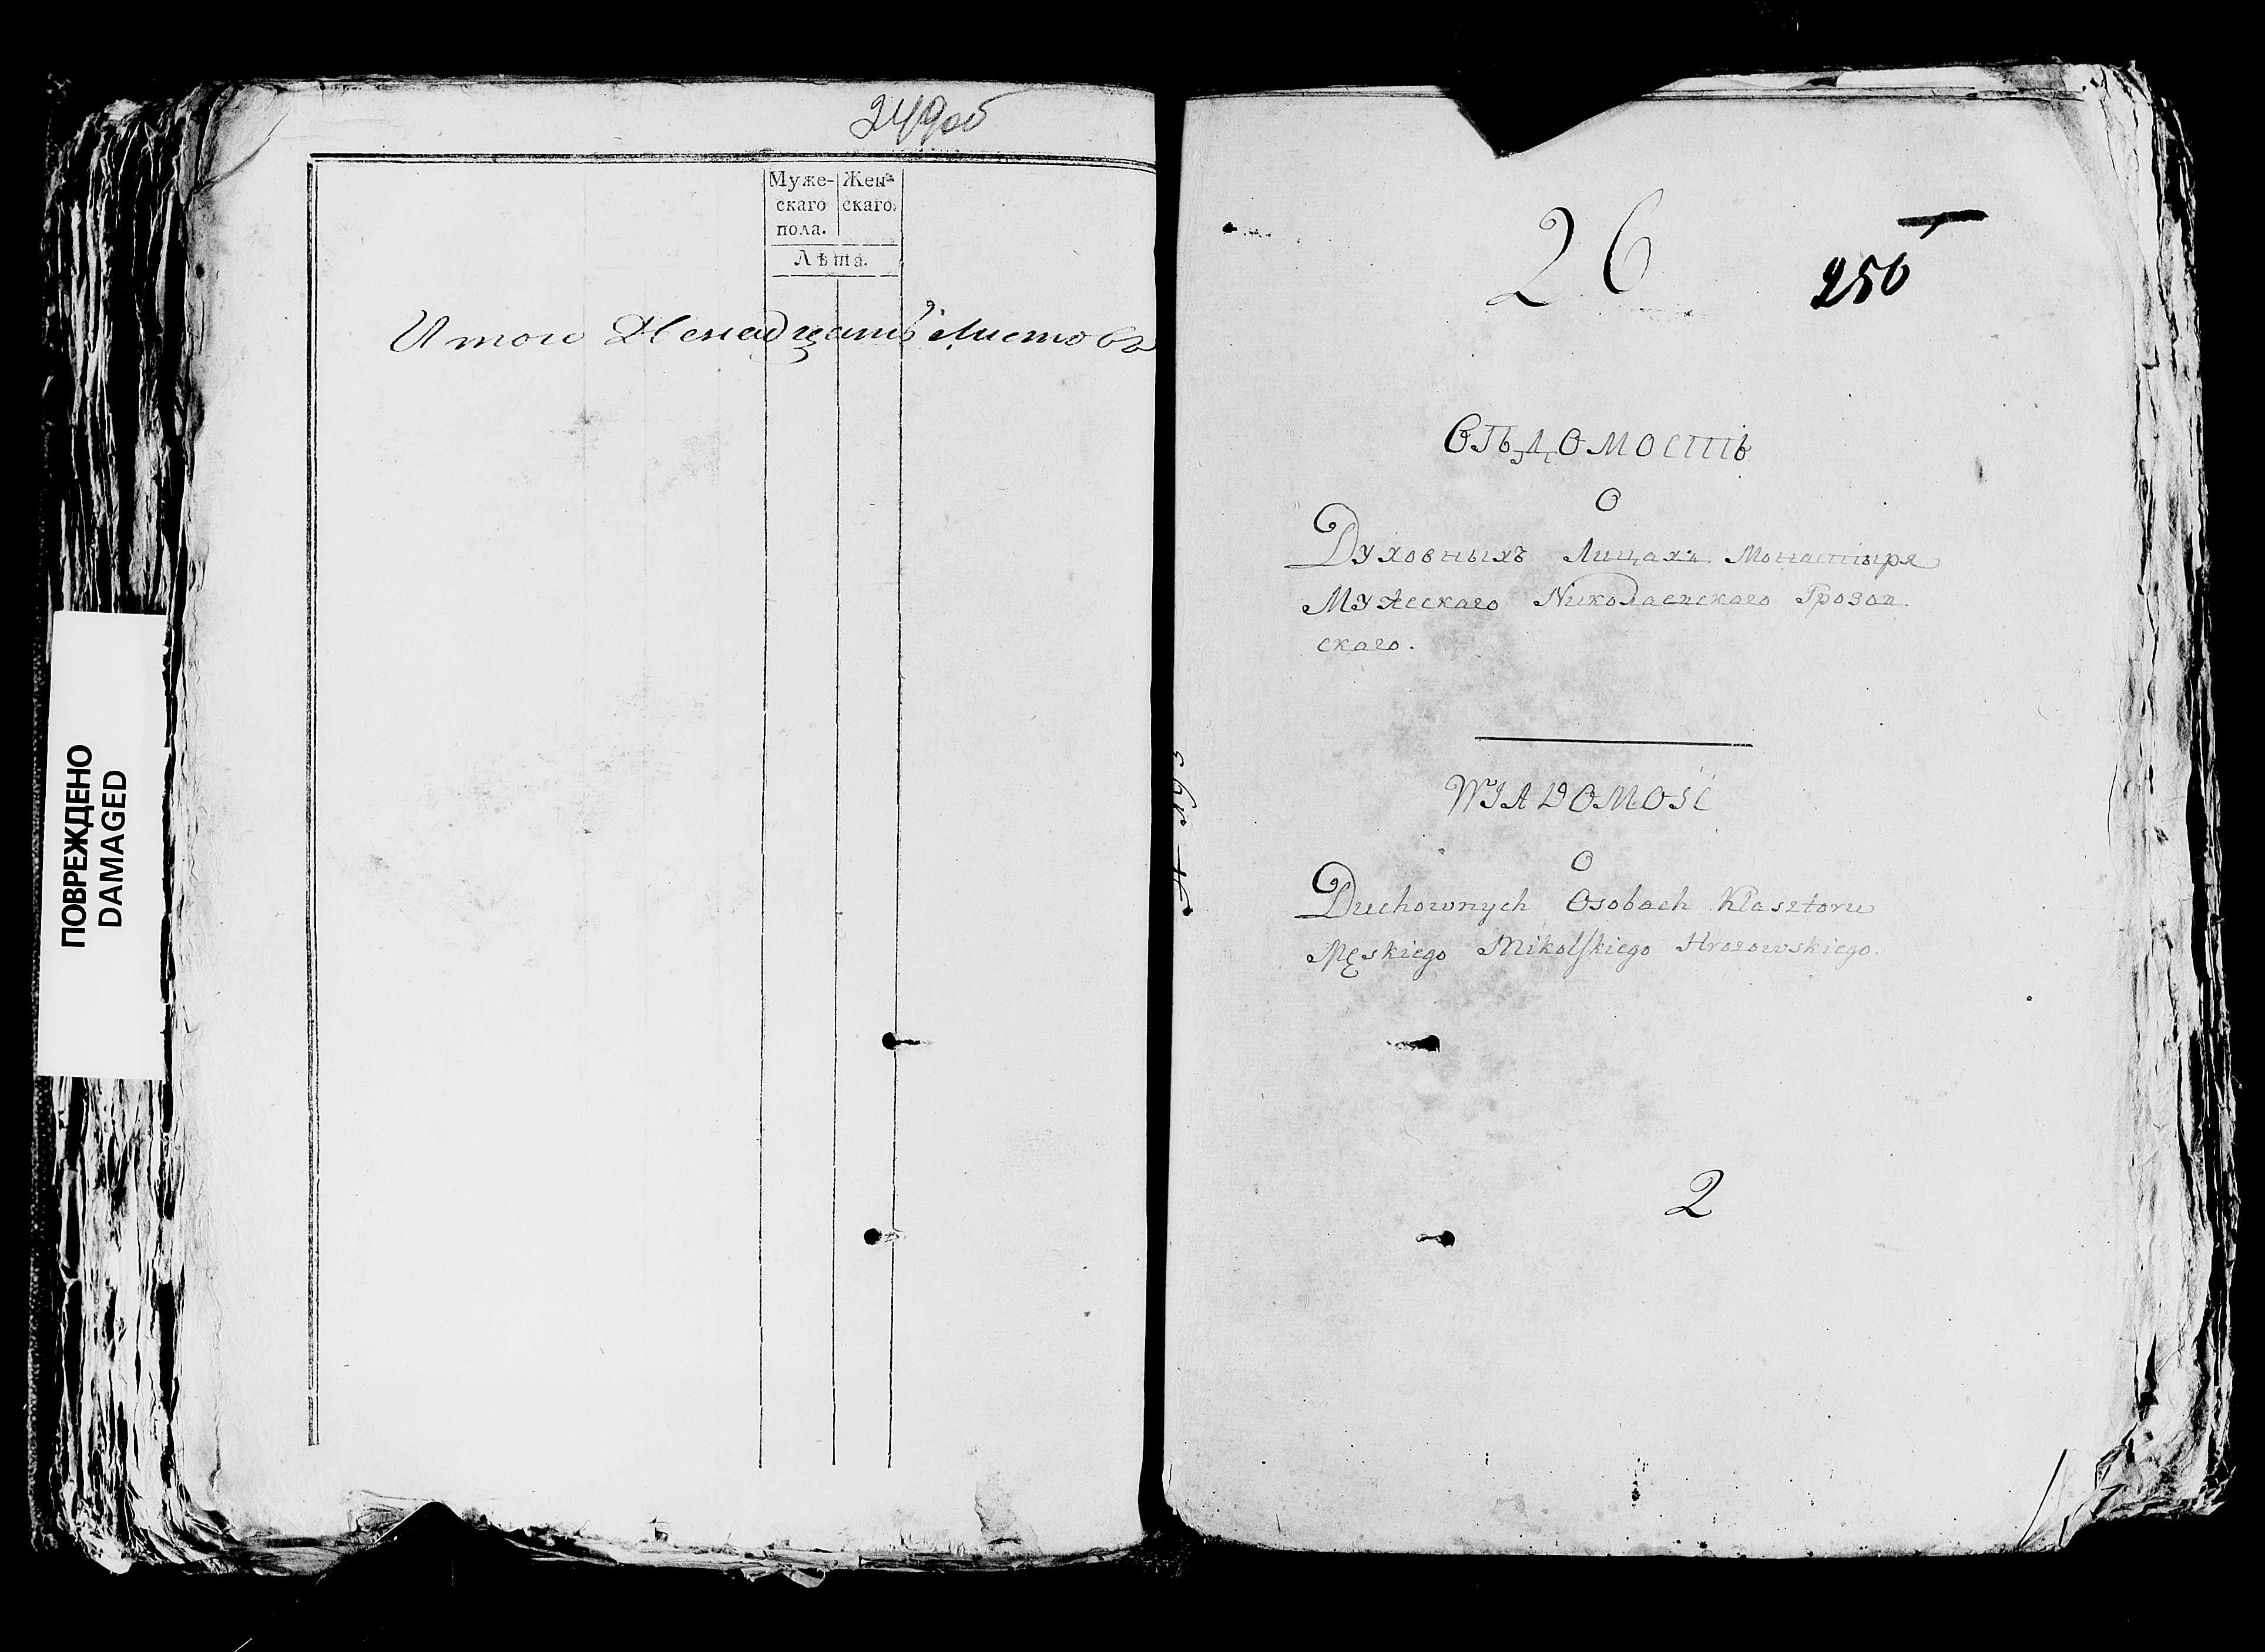 249об
Муже- Жен-
скаго скаго.
пола.
Лѣта.
Итого листовъ
ПОВРЕЖДЕНО
DAMAGED
26
250
Вѣдомость
О
Духовныхъ Лицахъ Монастыря
Мужескаго Николаевскаго Грозов
скаго.
WIADOMOŚĆ
O
Duchownych Osobach Klasztoru
Męskiego Mikolskiego Hrozowskiego.
2